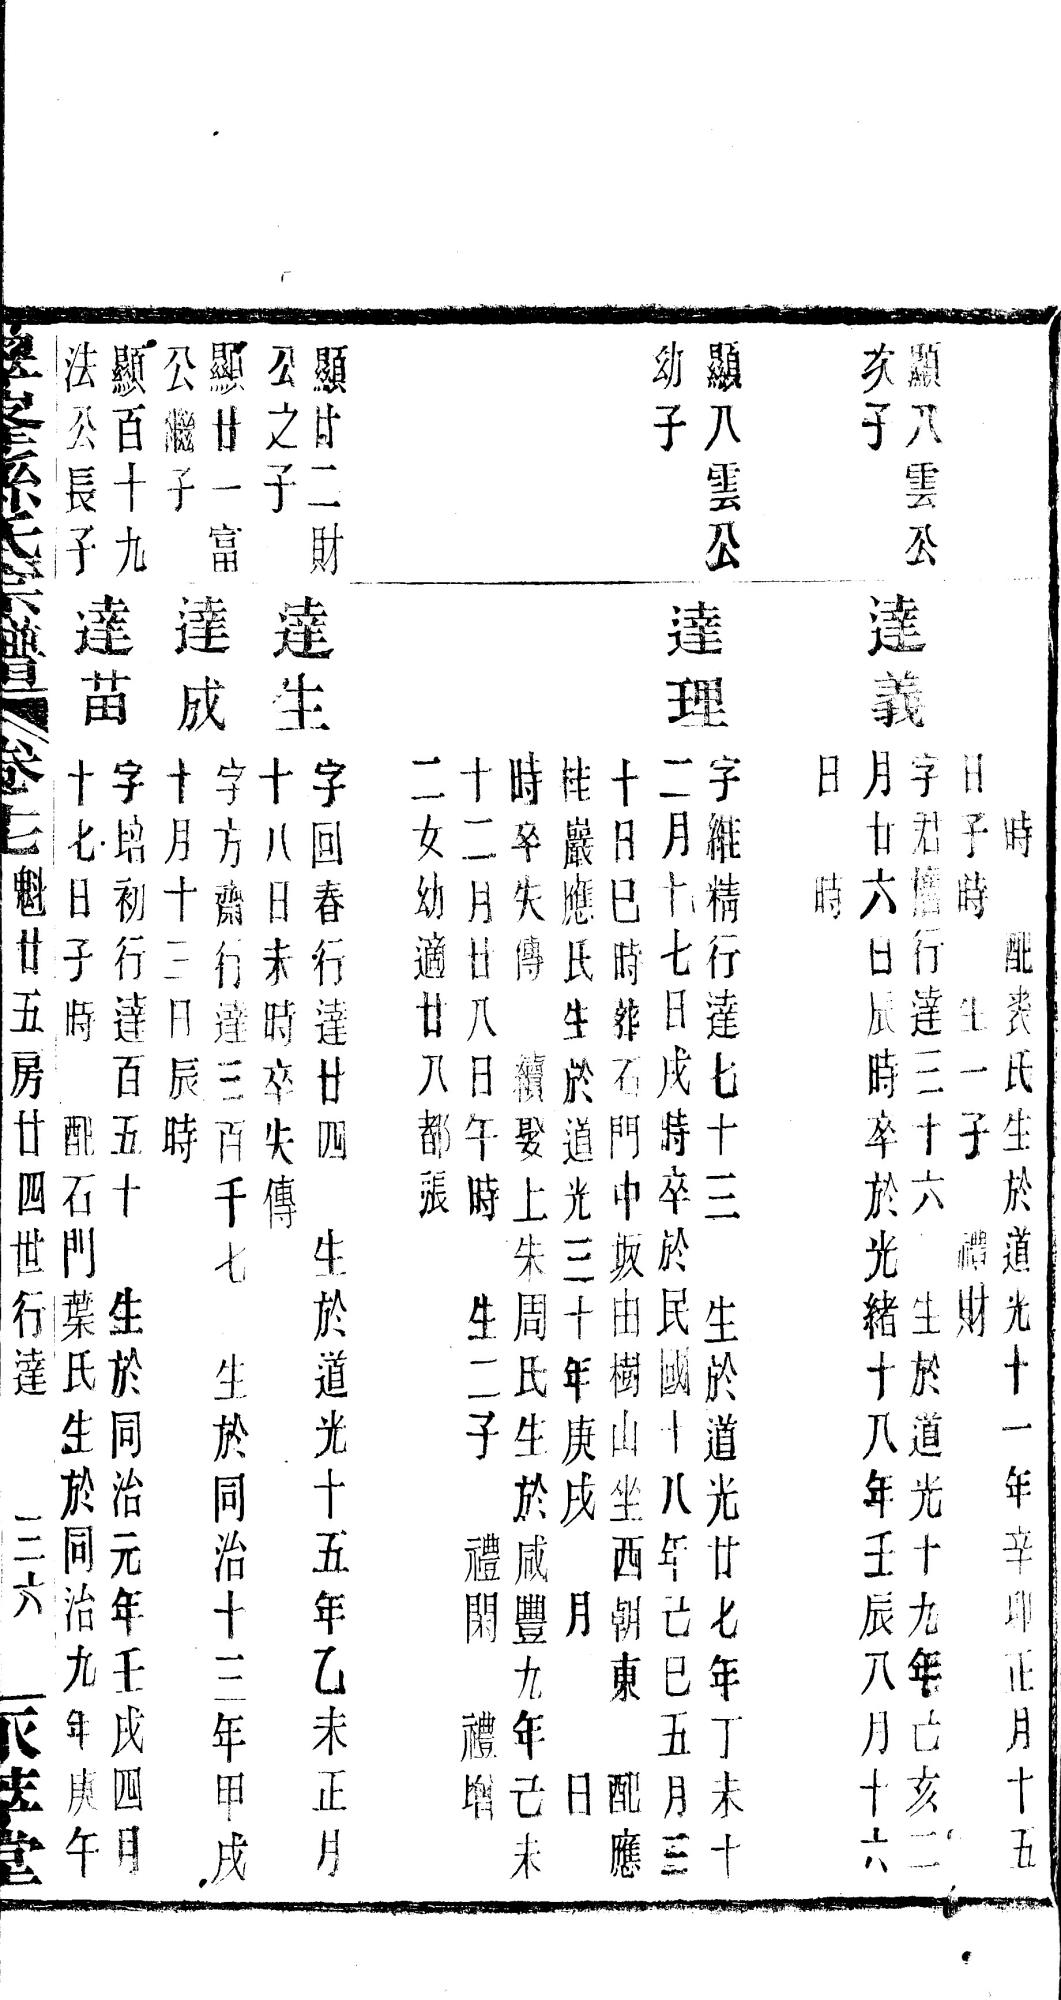 時 配裘氏生於道光十一年辛卯正月十五
日子時 生一子 禮財
顯八雲公
次子
達義
字君 行達三十六 生於道光十九年己亥二
月廿六日辰時卒於光緒十八年壬辰八月十六
日 時
顯八雲公
幼子
達理
字維精行達七十三 生於道光廿七年丁未十
二月十七日戌時卒於民國十八年己巳五月三
十日巳時葬石門中坂由樹山坐西朝東 配應
桂巖應氏生於道光三十年庚戌 月 日
時卒失傳 續娶上朱周氏生於咸豐九年己未
十二月廿八日午時 生二子 禮閑 禮增
二女幼適廿八都張
顯廿二財
公之子
達生
字回春行達廿四 生於道光十五年乙未正月
十八日未時卒失傳
顯廿一富
公繼子
達成
字方齋行達三百千七 生於同治十三年甲戌
十月十三日辰時
顯百十九
法公長子
達苗
字培初行達百五十 生於同治元年壬戌四月
十七日子時 配石門葉氏生於同治九年庚午
孫氏宗譜 卷七 魁廿五房廿四世行達 三六 堂